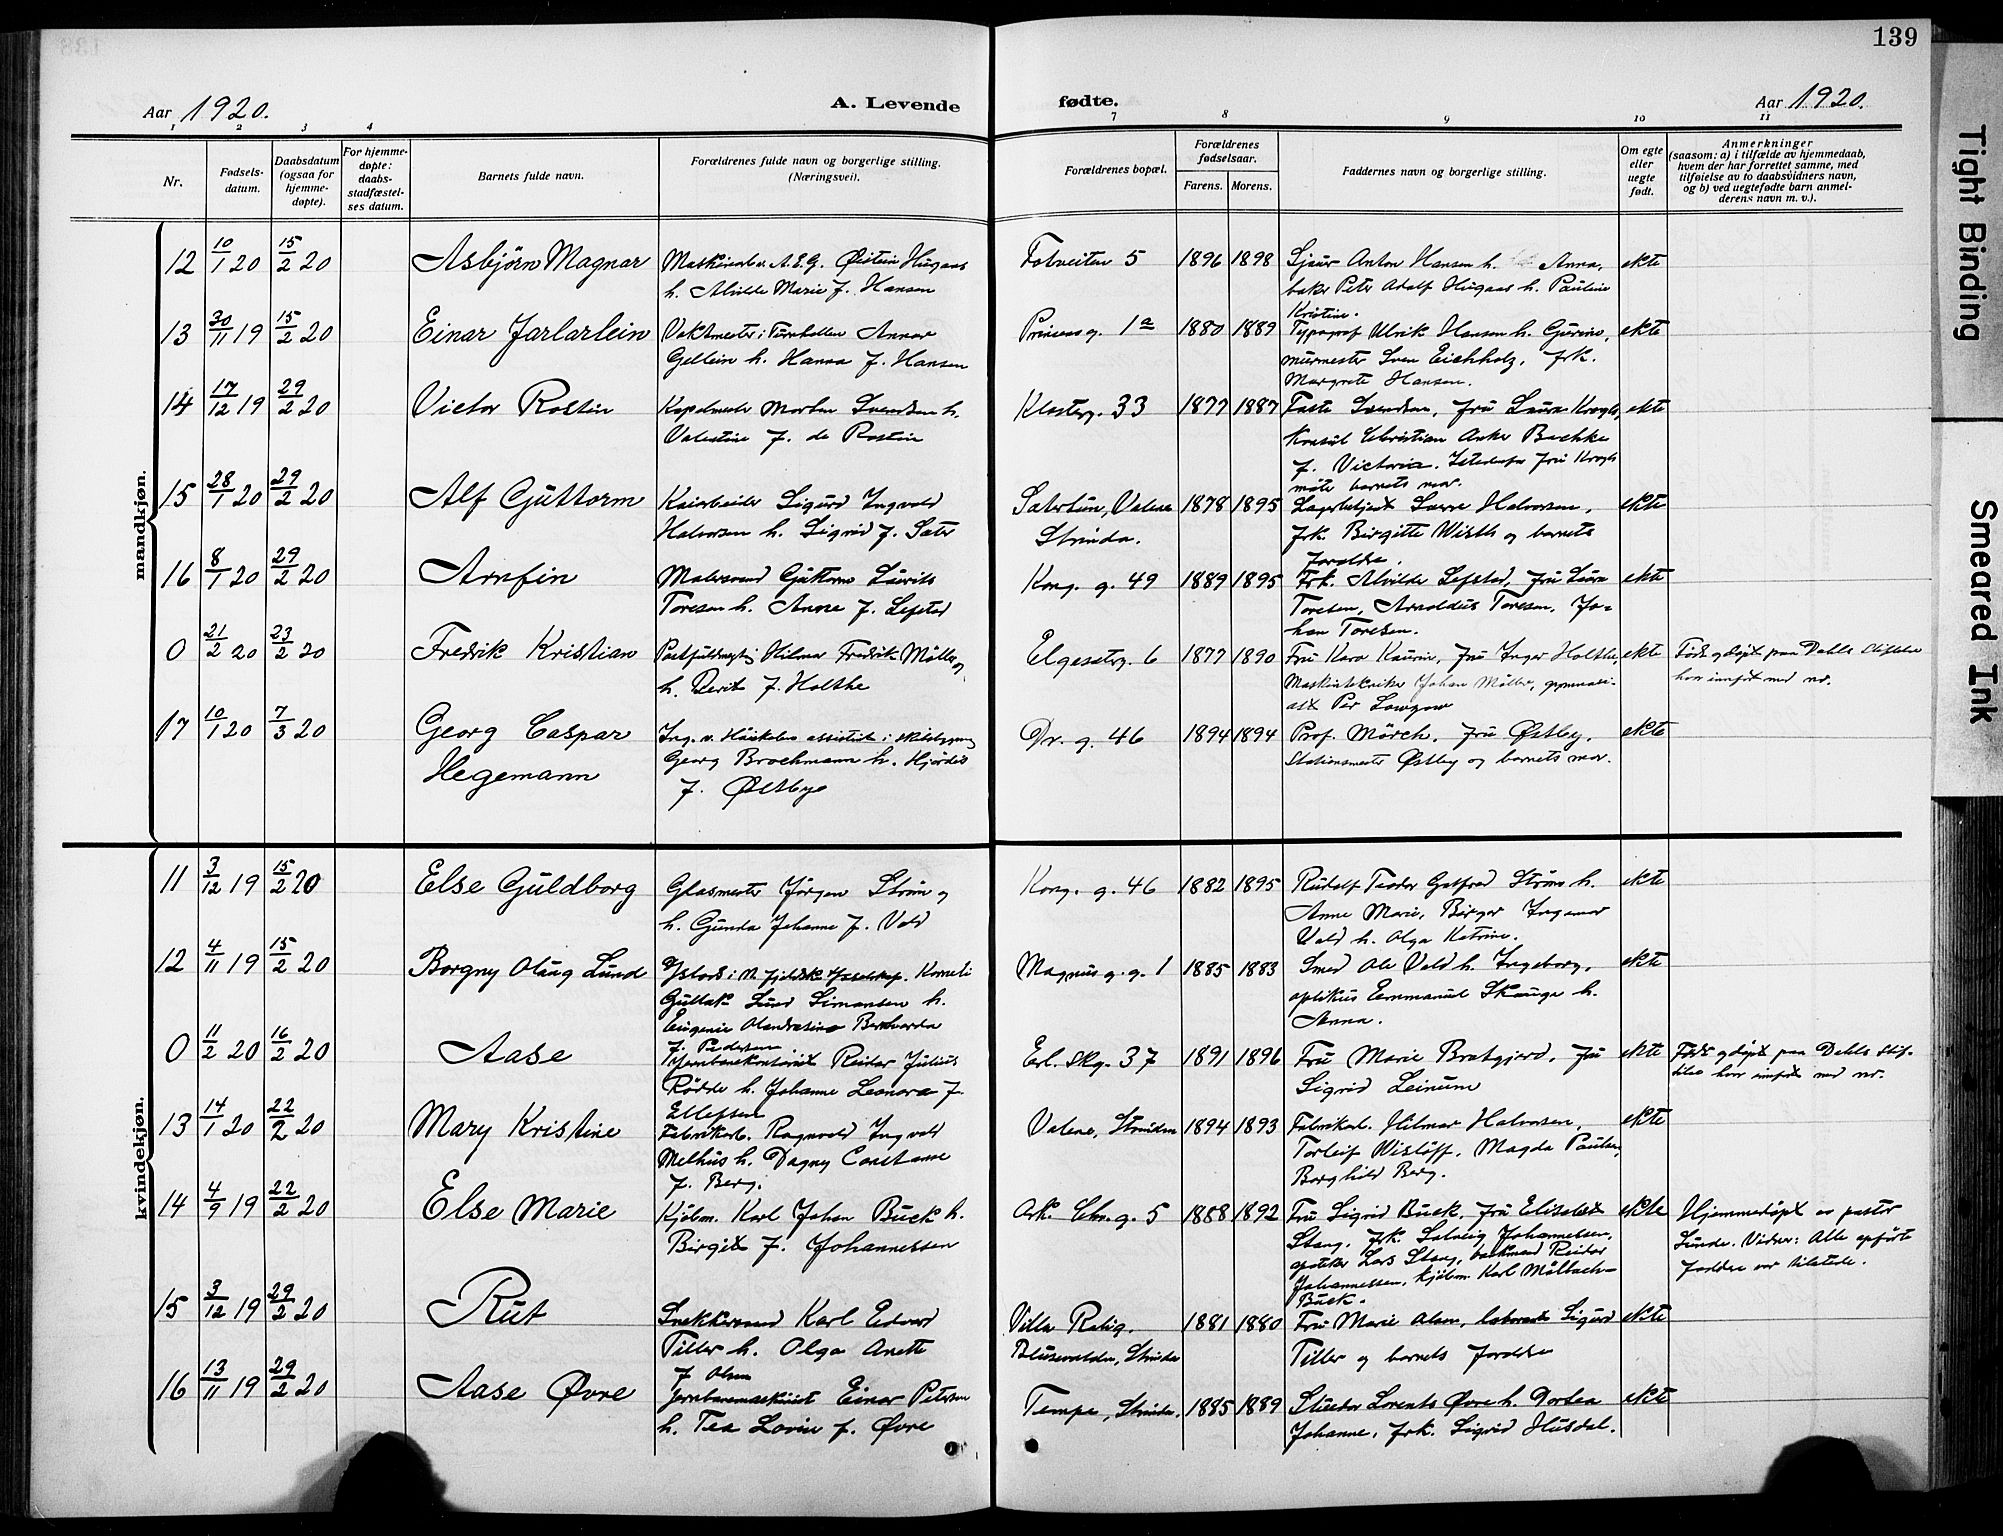 139
Aar 1920. A. Levende fødte. Aar 1920.
1 2 3 4 7 8 9 10 11
Nr.
Fødsels-
datum.
Daabsdatum
(ogsaa for
hjemme-
døpte).
For hjemme-
døpte:
daabs-
stadfæstel-
ses datum.
Barnets fulde navn.
Forældrenes fulde navn og borgerlige stilling.
(Næringsvei).
Forældrenes bopæl.
Forældrenes
fødselsaar.
Farens. Morens.
Faddernes navn og borgerlige stilling.
Om egte
eller
uegte
født.
Anmerkninger
(saasom: a) i tilfælde av hjemmedaab,
hvem der har forrettet samme, med
tilføielse av to daabsvidners navn,
og b) ved uegtefødte barn anmel-
derens navn m. v.).
mandkjøn.
12 10/1 20 15/2 20 Asbjörn Magnar
h. Alvilde Marie f. Hansen
5 1896 1898 Anton Hansen h. Anna, ekte
baker Peter Adolf Hugaas h. Pauline
Kristine.
13 30/11 19 15/2 20 Einar Jarlarlein Vaktmester i Turnhallen
Gellein h. Hanna f. Hansen
Prinsensg. 1a 1880 1889 Typograf Ulrik Hansen h. Gurine, ekte
murmester Sven Eichholz, frk.
Margrete Hansen.
14 17/12 19 29/2 20 Victor Rostin Kapelmester Morten Svendsen h.
Valestine f. de Rostin
Klosterg. 33 1877 1887 Svendsen, fru Laura Krogh, ekte
Konsul Christian Anker Bachke
f. Victoria. fru Krogh
møte barnets mor.
15 28/1 20 29/2 20 Alf Guttorm Kaiarbeider Sigurd Ingvald
Halvorsen h. Sigrid f. Sæter
Strinda. 1878 1895 Halvorsen, ekte
frk. Birgitte Wisth og barnets
foreldre.
16 8/1 20 29/2 20 Arnfin Malersvend Guttorm Laurits
Toresen h. Anna f. Lefstad
Kong. g. 49 1889 1895 Frk. Alvilde Lefstad, fru Laura ekte
Toresen, Arnoldus Toresen, Jo-
han Toresen.
0 21/2 20 23/2 20 Fredrik Kristian Postfuldmægtig Hilmar Fredrik Möller og
h. Berit f. Holthe
Elgesæterg. 6 1877 1890 Fru Kara Kaurin, fru Inger Holthe, ekte
Maskintekniker Johan Möller, gymnasi-
ast Per Lowzow
Født og døpt paa Dahls Stiftelse
hvor innført med nr.
17 10/1 20 7/3 20 Georg Caspar
Hegemann
Georg Brochmann h. Hjördis
f. Østbye
Dr. g. 46 1894 1894 Prof. Mörch, fru Østby, ekte
Stationsmester Østby og barnets mor.
kvindekjøn.
11 3/12 19 15/2 20 Else Guldborg Glasmester Jörgen Ström og
h. Gunda Johanne f. Vold
Kong. g. 46 1882 1895 Rudolf Teodor Gotfred Ström h. ekte
Anne Marie, Birger Ingemar
Vold h. Olga Katrine.
12 4/11 19 15/2 20 Borgny Olaug Lund
Lund Simonsen h.
Eugenie
f. Pedersen
Magnus g. g. 1 1885 1883 Smed Ole Vold h. Ingeborg, ekte
optikus Emmanuel Skauge h.
Anna.
0 11/2 20 16/2 20 Aase Jernbanekontorist Reidar Julius
Rödde h. Johanne Leonora f.
Ellefsen
Erl. Skg. 37 1891 1896 Fru Marie Bratgjerd, fru ekte
Sigrid Leinum
Født og døpt paa Dahls Stif-
telse hvor innført med nr.
13 14/1 20 22/2 20 Mary Kristine Fabrikarb. Ragnvald Ingvald
Melhus h. Dagny Constanse
f. Berg.
Strinda 1894 1893 Fabrikarb. Hilmar Halvorsen, ekte
Torleif Wislöff, Magda Paulsen,
Borghild Berg.
14 4/9 19 22/2 20 Else Marie Kjöbm. Karl Johan Buck h.
Birgit f. Johannessen
Ark. Chr. g. 5 1888 1892 Fru Sigrid Buck, fru Elisabet ekte
Stang, frk. Solveig Johannessen,
apoteker Lars Stang, Reidar
Johannessen, kjöbm. Karl Möllbach-
Buck.
Hjemmedøpt av pastor
Lunde. Vidner: Alle opførte
faddere var tilstede.
15 3/12 19 29/2 20 Rut Snekkersvend Karl Edvard
Tiller h. Olga Anette
f. Olsen
Villa Rolig,
Strinda 1881 1880 Fru Marie Olsen, Sigurd ekte
Tiller og barnets foreldre
16 13/11 19 29/2 20 Aase Øvre Jernbanemaskinist Einar Petersen
h. Tea Lovise f. Øvre
Tempe, Strinda. 1885 1889 Lorents Øvre h. Dortea ekte
Johanne, frk. Sigrid Husdal.
Tight Binding
Smeared Ink